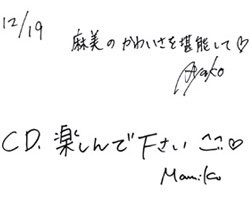 12/19
麻美のかわいさを堪能して♡
Ayako
CD.楽しんで下さい ^_^♡
Mamiko